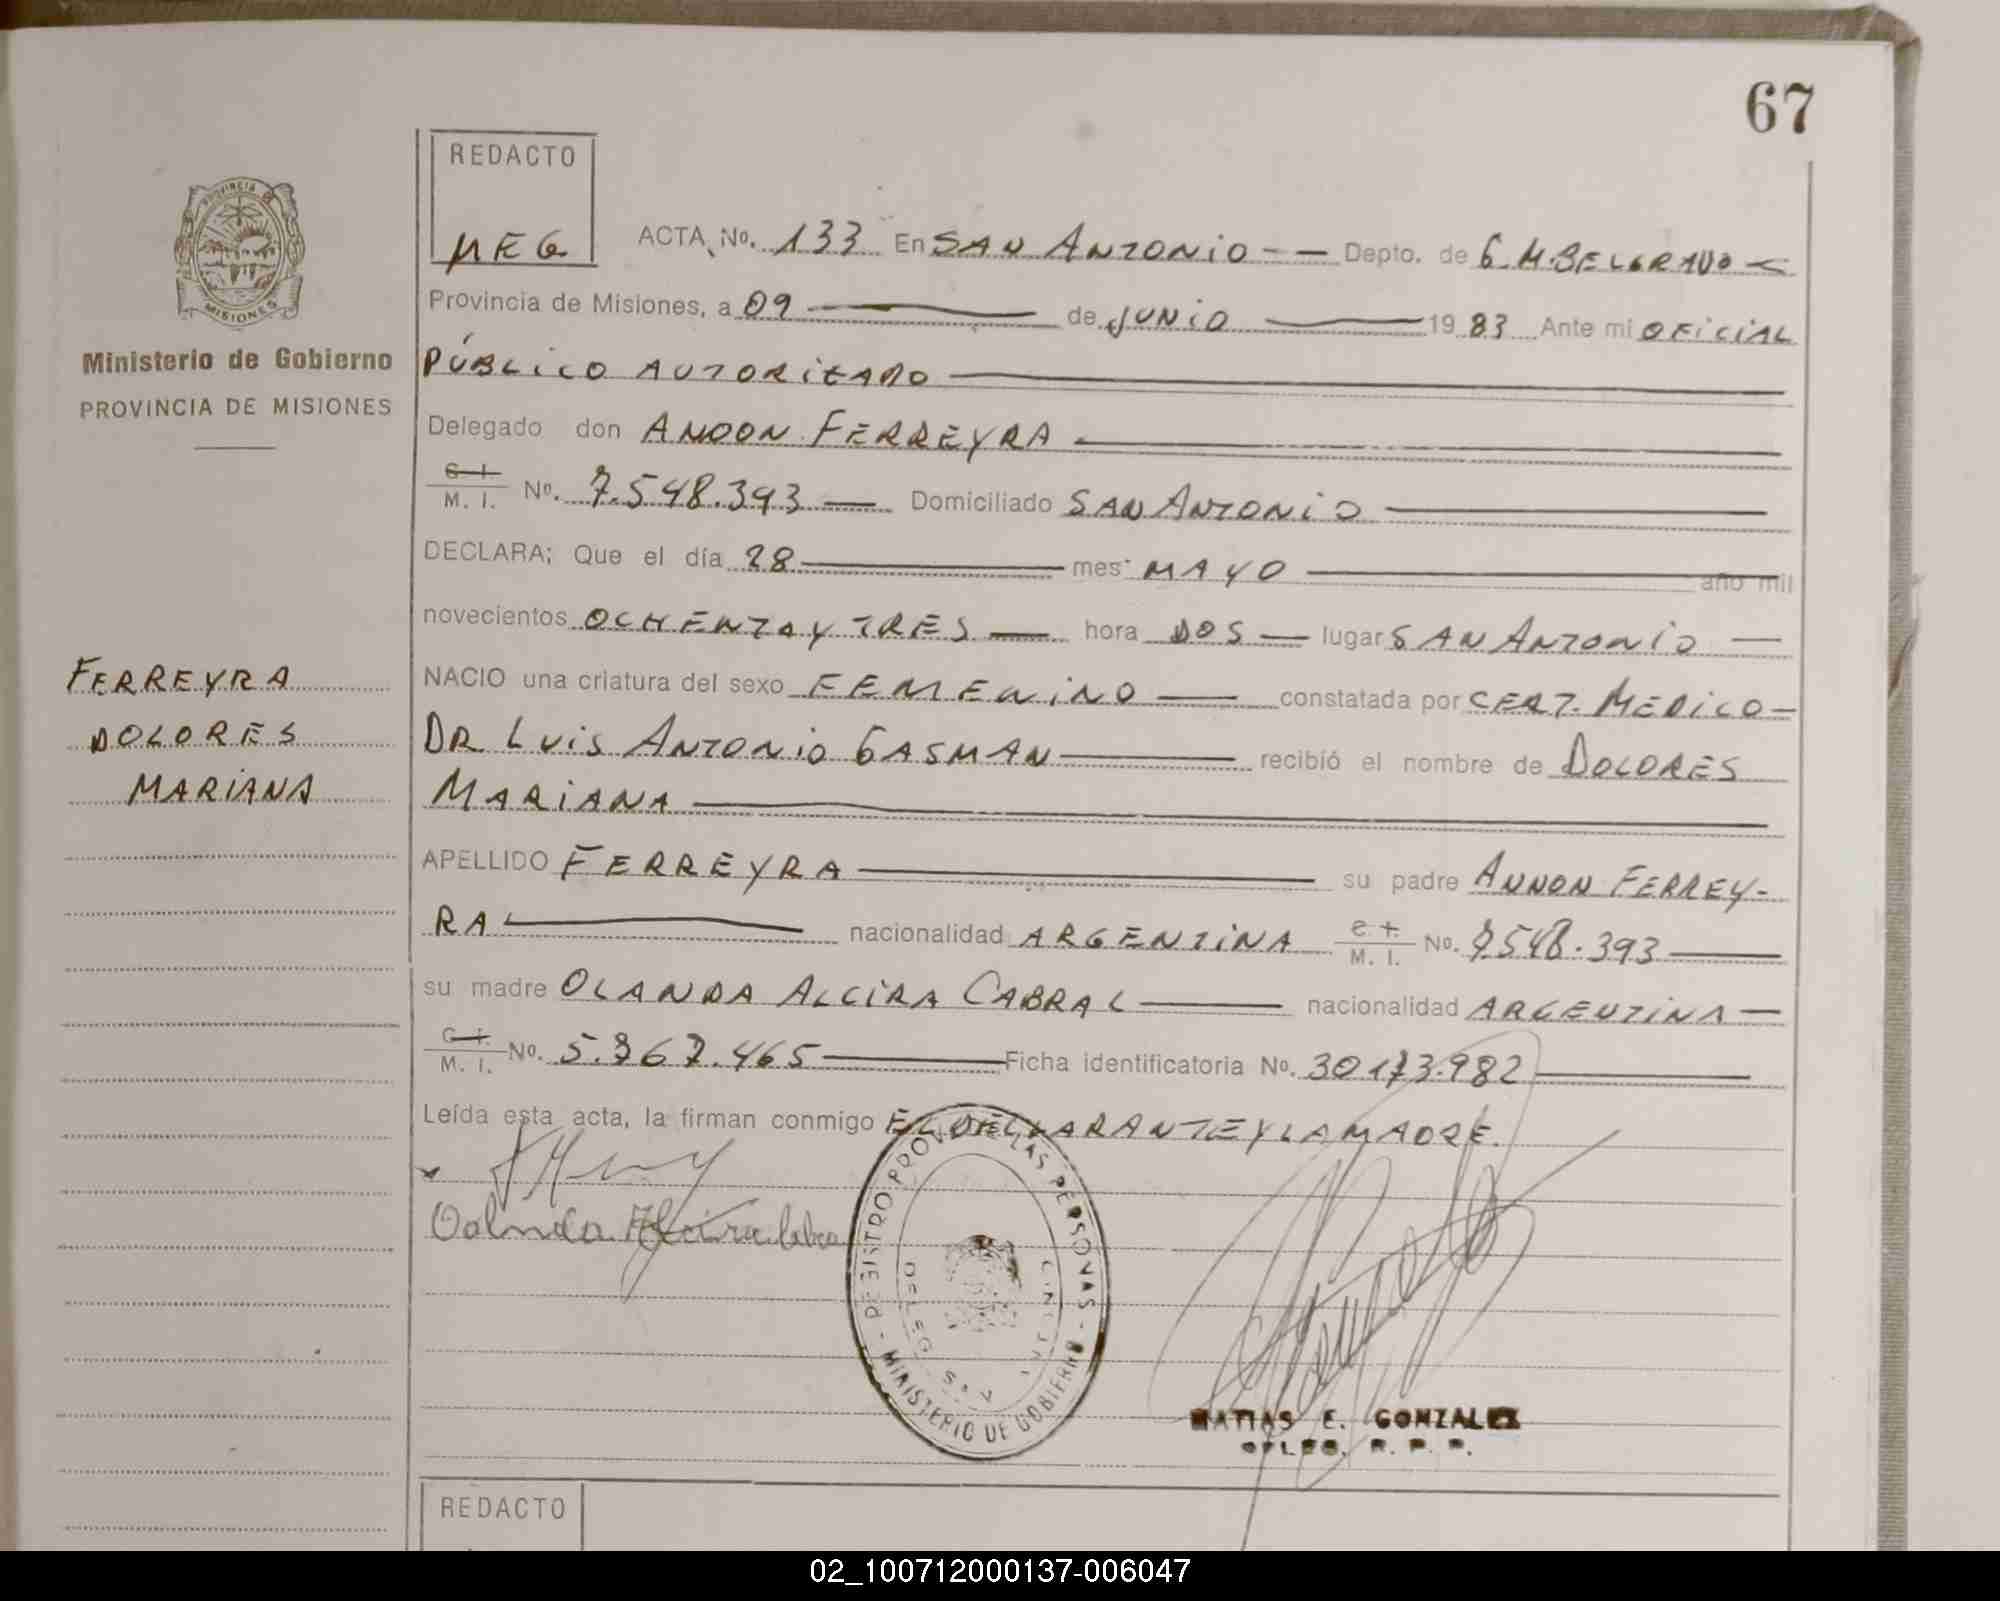 67
REDACTO
MEG
ACTA No. 133 En SAN ANTONIO - — Depto. de G. M. BELGRANO -
PROVINCIA DE MISIONES
Provincia de Misiones, a 09 — de JUNIO — 1983 Ante mi OFICIAL
Ministerio de Gobierno
PROVINCIA DE MISIONES
PÚBLICO AUTORIZADO —
Delegado don ANOON FERREYRA —
C. I. M. I. No. 7.548.393 — Domiciliado SAN ANTONIO —
DECLARA; Que el día 28 — mes MAYO — año mil
novecientos OCHENTA Y TRES — hora DOS — lugar SAN ANTONIO —
FERREYRA
DOLORES
MARIANA
NACIO una criatura del sexo FEMENINO — constatada por CERT. MEDICO -
DR LUIS ANTONIO GASMAN — recibió el nombre de DOLORES
MARIANA —
APELLIDO FERREYRA — su padre ANNON FERREY-
RA — nacionalidad ARGENTINA C. I. M. I. No. 7548.393 —
su madre OLANDA ALCIRA CABRAL — nacionalidad ARGENTINA —
C. I. M. I. No. 5.767.465 — Ficha identificatoria No. 30173.982 —
Leída esta acta, la firman conmigo EL DECLARANTE Y LA MADRE.
REGISTRO PROV. DE LAS PERSONAS - MINISTERIO DE GOBIERNO
MATIAS E. GONZALEZ
R. P. P.
REDACTO
02_100712000137-006047